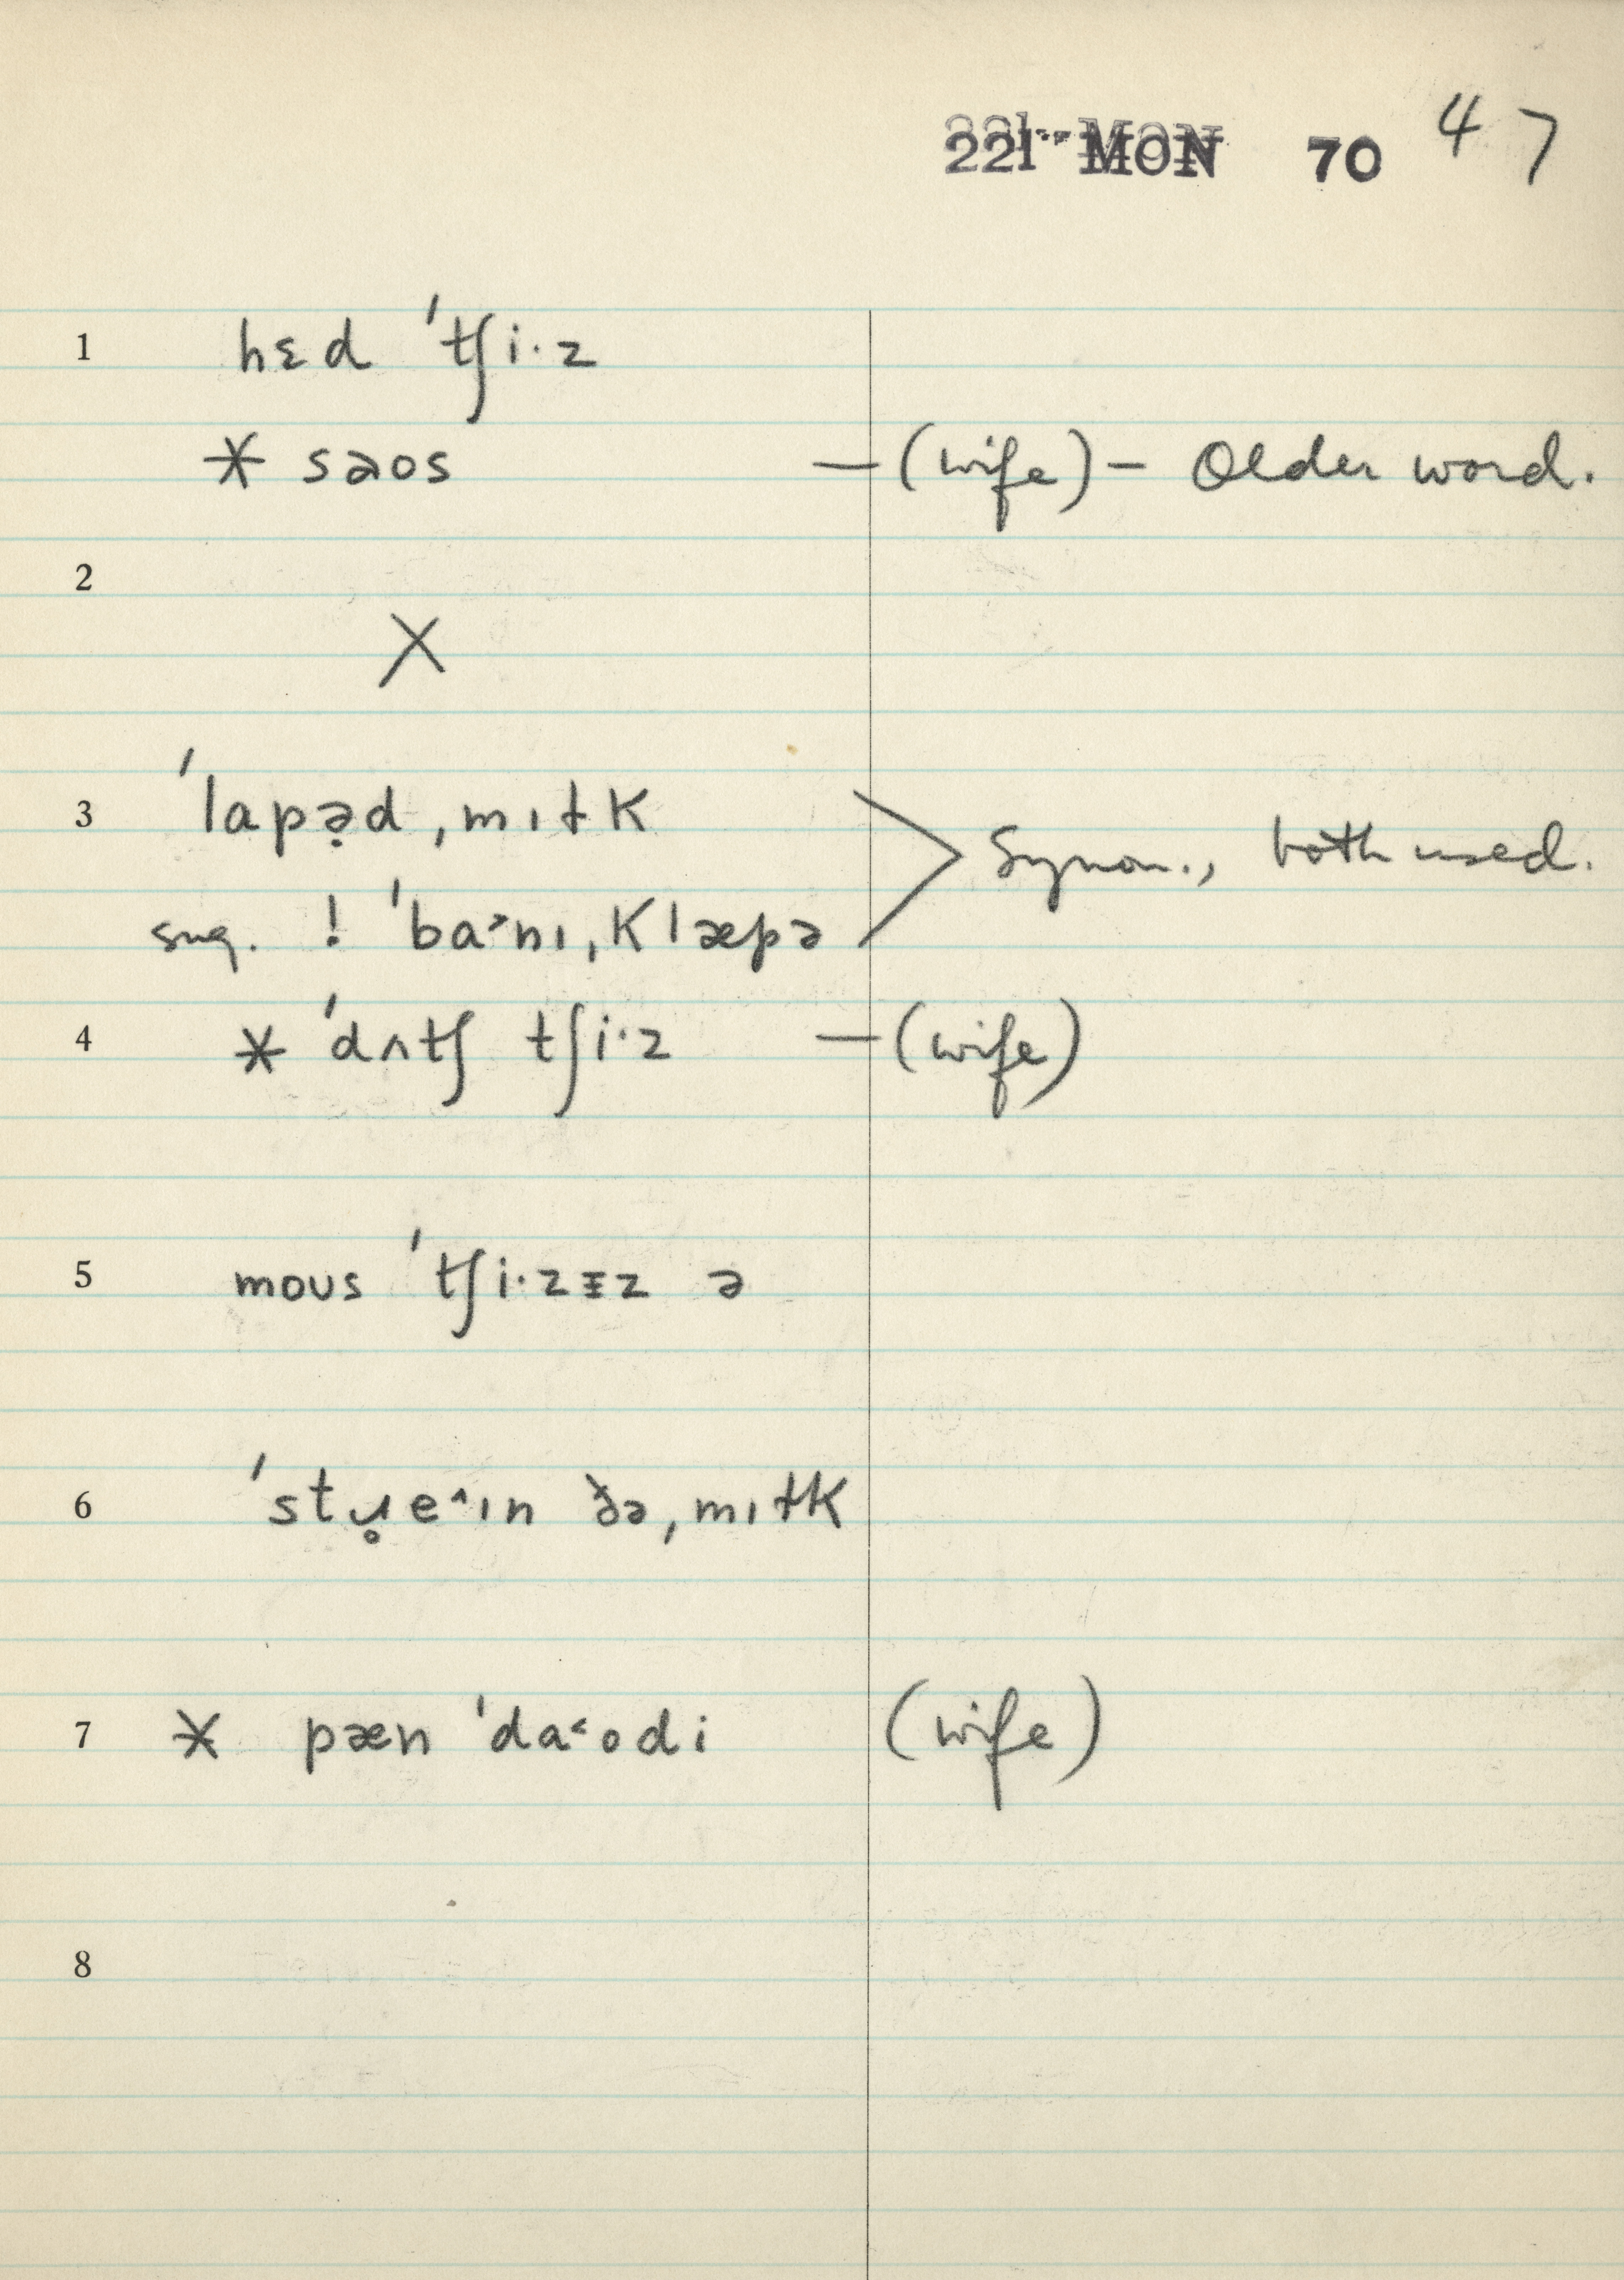 221 MON 70 47
1 hɛd ˈtʃi·z
* səos —(wife)— Older word.
2
X
3 ˈlapə̣d ˌmɪɫk
Synon., both used.
sug. ! ˈba˃nɪ ˌklæpə
4 * ˈdʌtʃ tʃi·z —(wife)
5 mous ˈtʃi·zɪz ə
6 ˈstɹ̥e^ɪn ðə ˌmɪɫk
7 * pæn ˈda˂odi (wife)
8